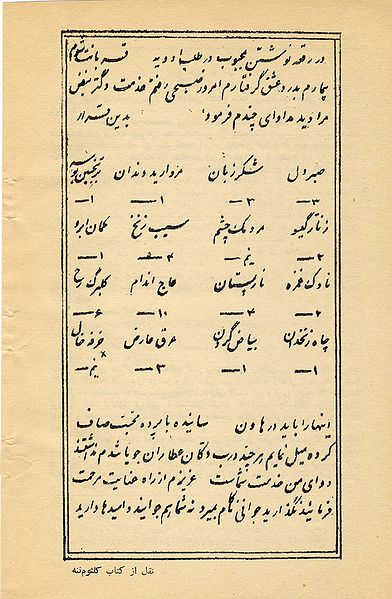 در رقعه نوشتن محبوب در طلب ادویه قسم بانت شوم
بیمارم بدرد عشق گرفتارم امروز طبیبی رفتم خدمت و گفت نبض
مرا دید مداوای چندم فرمود، بدین قسم از
صبر دل شکر زبان مروارید دندان ترنجبین بوسه
—۳ —۳ —۱ —۱
زنار گیسو مردمک چشم سیب زنخ کمان ابرو
—۲ —نیم —۴ —۱
ناوک غمزه نار پستان عاج اندام گلبرگ رخ
—۲ —۴ —۱۰ —۶
چاه زنخدان بیاض گردن عرق عارض خرفه خال
—۱ —۱ —۳ —نیم
اینها را باید در هاون سائیده با پرده محبت صاف
کرده میل نمایم هر چند درب دکان عطاران جویا شدم نداشتند
دوای من خدمت شماست عزیزم از راه عنایت مرحمت
فرمائید نگذارید جوانی ناکام بمیرد نه شما هم جوانید و امیدها دارید
نقل از کتاب کلثوم‌ننه